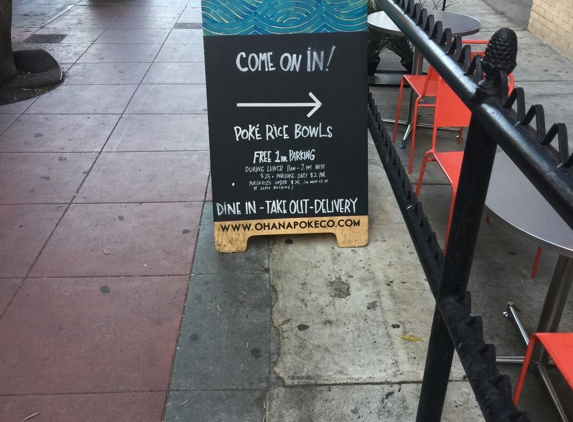 COME ON IN!
POKÉ RICE BOWLS
FREE 1HR PARKING
DURING LUNCH 11AM - 2PM WITH
$25+ PURCHASE. ONLY $2 FOR
PURCHASES UNDER $25.
DINE IN - TAKE OUT - DELIVERY
WWW.OHANAPOKECO.COM